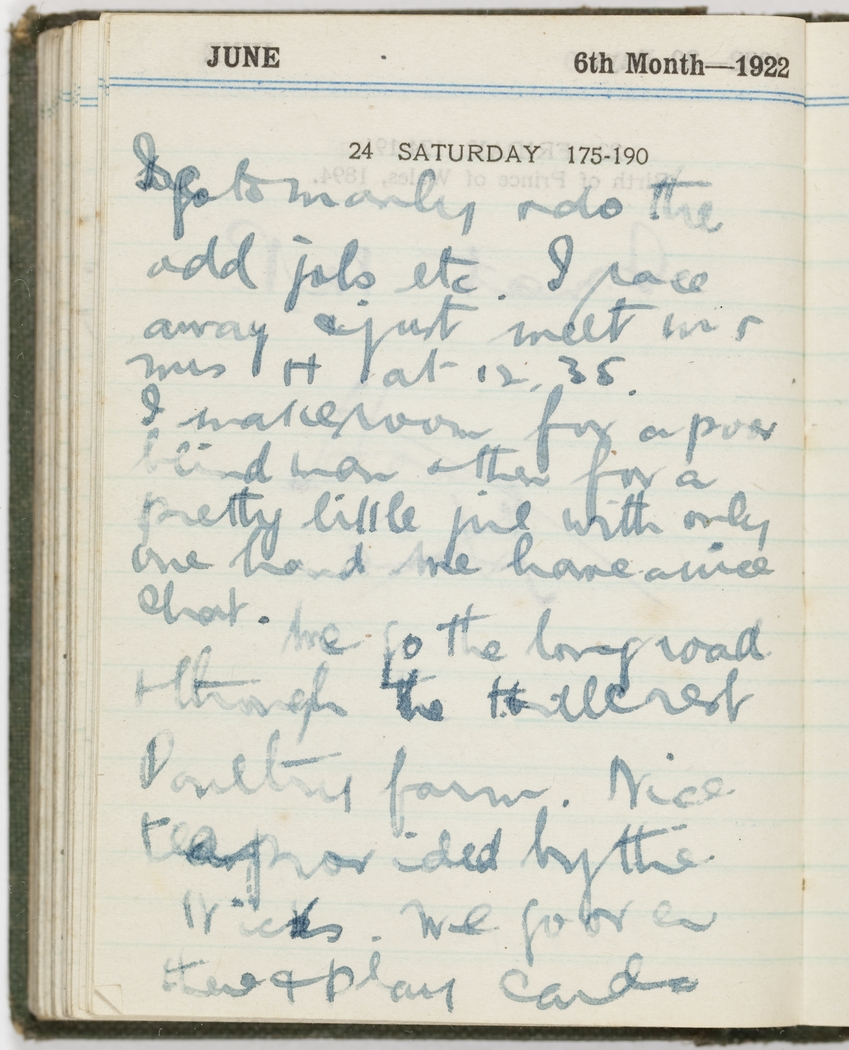 JUNE 6th Month—1922
24 SATURDAY 175-190
I go to manly & do the
odd jobs etc. I race
away & just meet Mr &
mrs H at 12.35.
I make room for a poor
blind man & then for a
pretty little girl with only
one hand We have a nice
chat.
We go the long road
through the Hillcrest
Poultry farm. Nice
tea provided by the
Hicks. We go over
there & play cards